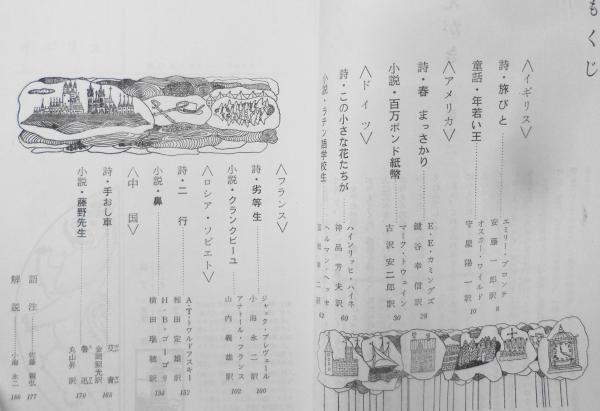 もくじ
〈イギリス〉
詩・旅びと
エミリー・ブロンテ
安藤一郎訳 8
童話・年若い王
オスカー・ワイルド
守屋陽一訳 10
〈アメリカ〉
詩・春 まっさかり
E・E・カミングズ
鍵谷幸信訳 28
小説・百万ポンド紙幣
マーク・トウェイン
古沢安二郎訳 30
〈ドイツ〉
詩・この小さな花たちが
ハインリッヒ・ハイネ
神品芳夫訳 60
小説・ラテン語学校生
ヘルマン・ヘッセ
訳 62
〈フランス〉
詩・劣等生
ジャック・プレヴェール
小海永二訳 100
小説・クランクビーユ
アナトール・フランス
山内義雄訳 102
〈ロシア・ソビエト〉
詩・二行
A・T・トワルドフスキー
稲田定雄訳 132
小説・鼻
H・B・ゴーゴリ
横田瑞穂訳 134
〈中国〉
詩・手おし車
艾青
訳 168
小説・藤野先生
魯迅
丸山昇訳 170
語注
佐藤 弘 177
解説
小海永二 186